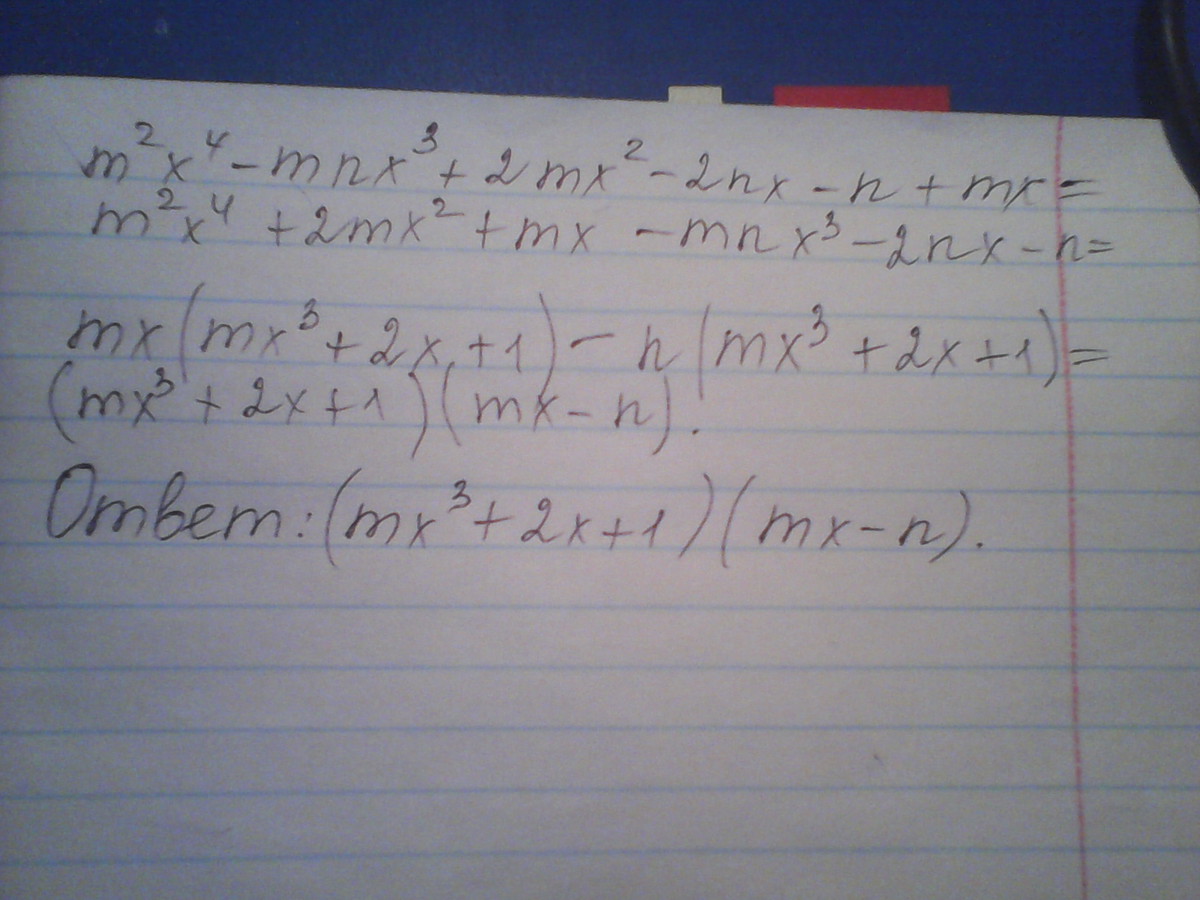 m²x⁴ - mnx³ + 2mx² - 2nx - n + mx =
m²x⁴ + 2mx² + mx - mnx³ - 2nx - n =
mx(mx³ + 2x + 1) - n(mx³ + 2x + 1) =
(mx³ + 2x + 1)(mx - n).
Ответ: (mx³ + 2x + 1)(mx - n).